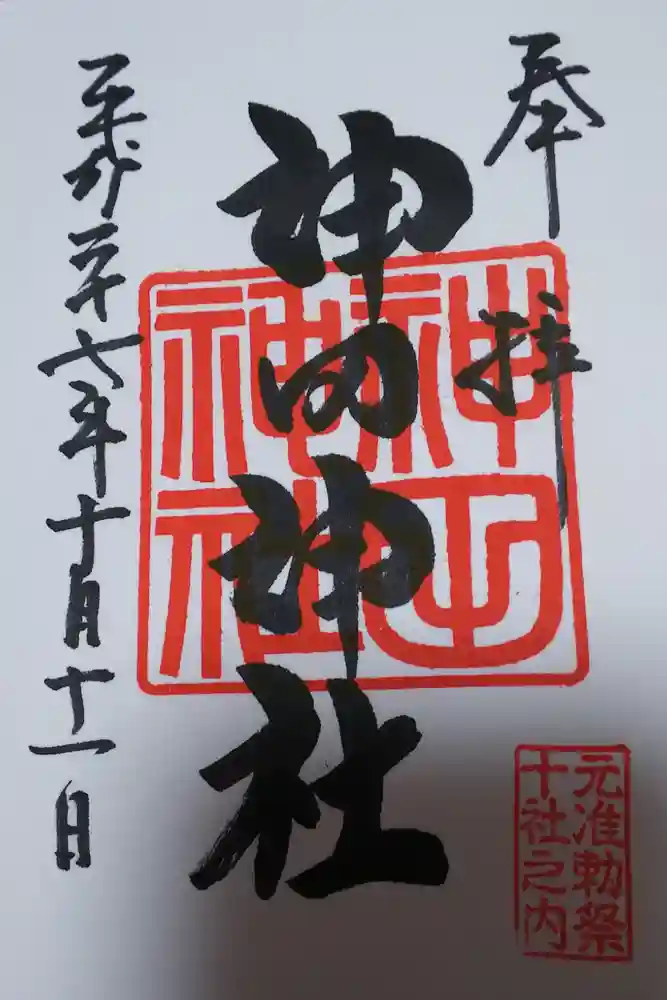 奉拝
神田神社
平成二十七年十月十一日
神田
神社
元准勅祭
十社之内